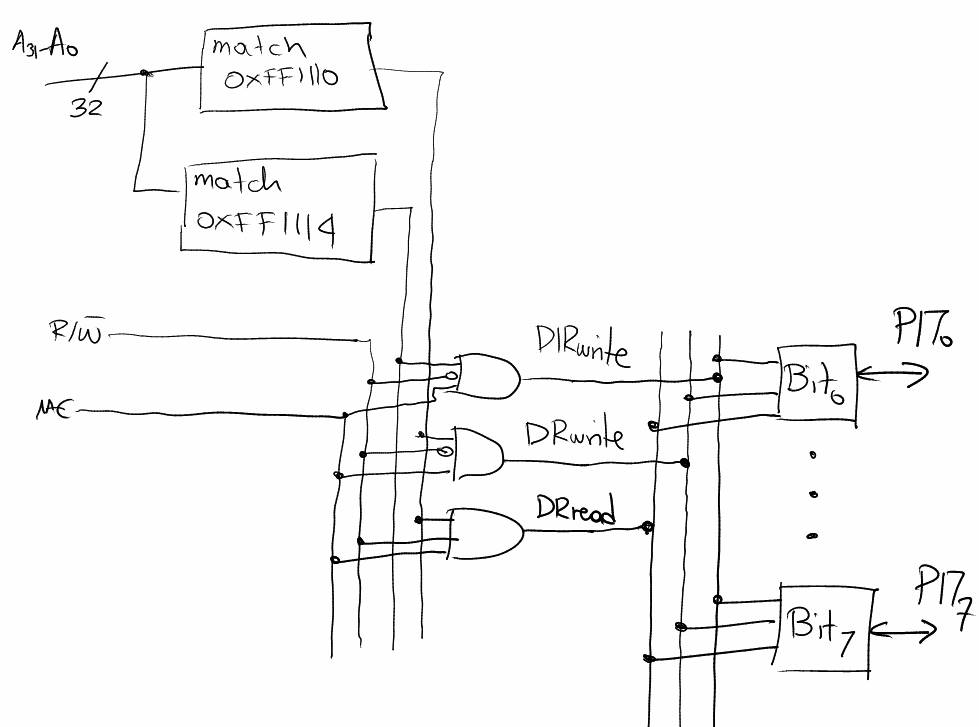 A31-A0
32
match
0xFF1110
match
0xFF1114
R/W̅
ME
DIRwrite
DRwrite
DRread
Bit0
PIT0
Bit7
PIT7